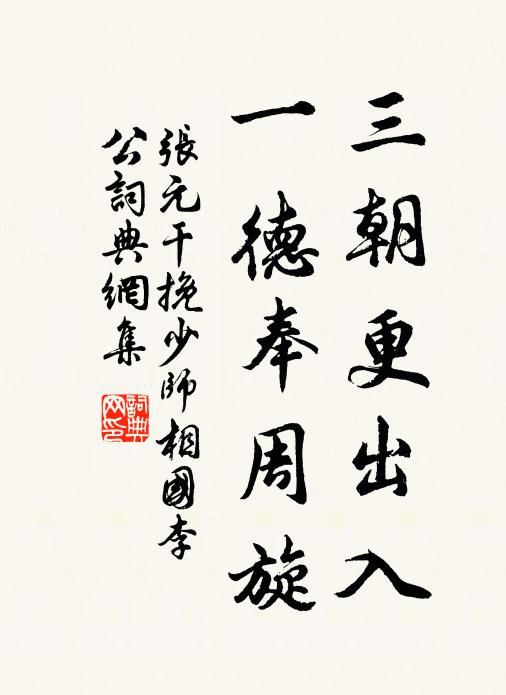 三朝更出入
一德奉周旋
張元干挽少師相國李
公詞典網集
詞典
网印